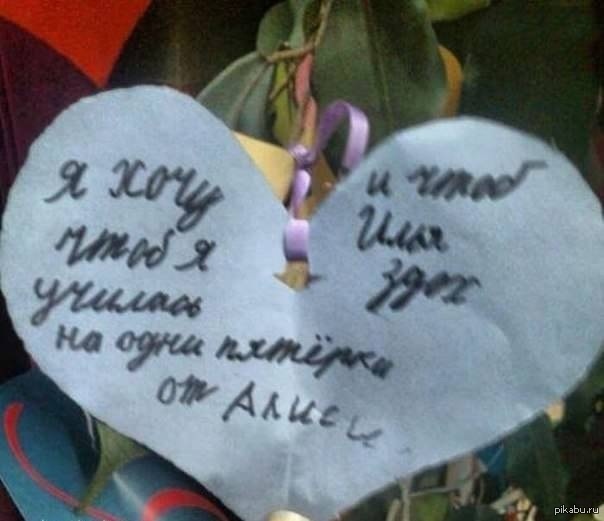 я хочу
чтоб я
училась
на одни пятёрки
от Алисы.
и чтоб
Илья
здох
pikabu.ru